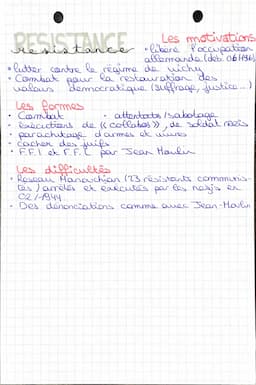 RESISTANCE
résistance
Les motivations
• libère l'occupation
allemande (déb. 06/1940)
• lutter contre le régime de vichy
• Combat pour la restauration des
valeurs democratique (suffrage, justice...)
Les formes
• Combat • attentats/sabotage
• éxécutions de «collabos», de soldat nazis
• parachutage d'armes et vivres
• cacher des juifs
• F.F.I et F.F.L par Jean Moulin
Les difficultés
• Reseau Manouchian (23 résistants communis-
tes) arrêtés et exécutés par les nazis en
02/1944.
• Des dénonciations comme avec Jean-Moulin